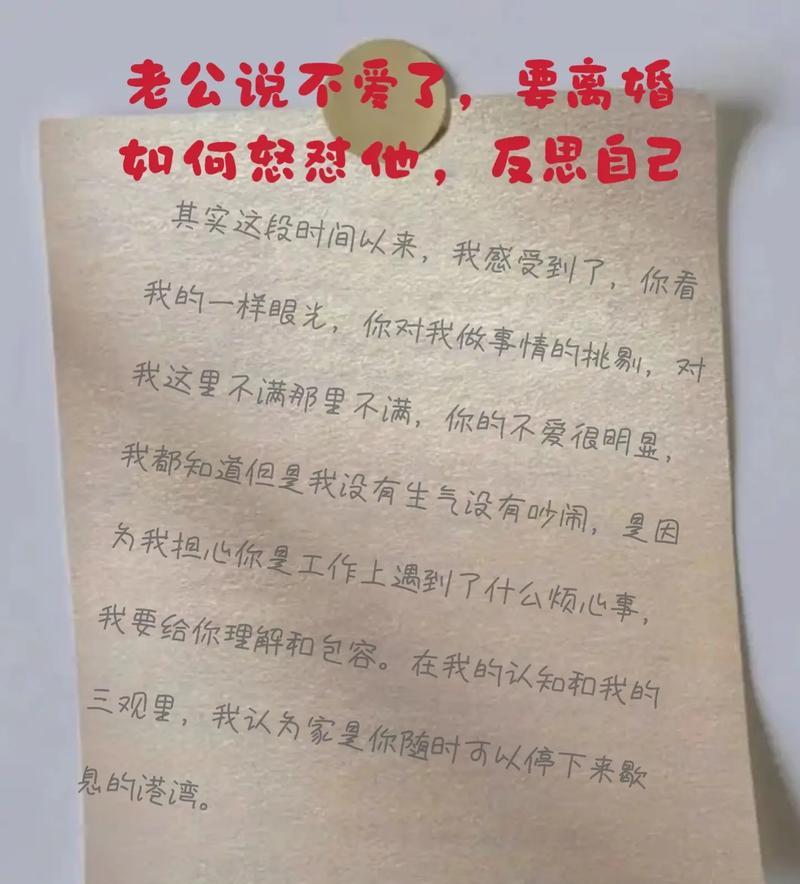 老公说不爱了，要离婚
如何怒怼他，反思自己
其实这段时间以来，我感受到了，你看
我的一样眼光，你对我做事情的挑剔，对
我这里不满那里不满，你的不爱很明显，
我都知道但是我没有生气没有吵闹，是因
为我担心你是工作上遇到了什么烦心事，
我要给你理解和包容。在我的认知和我的
三观里，我认为家是你随时可以停下来歇
息的港湾。